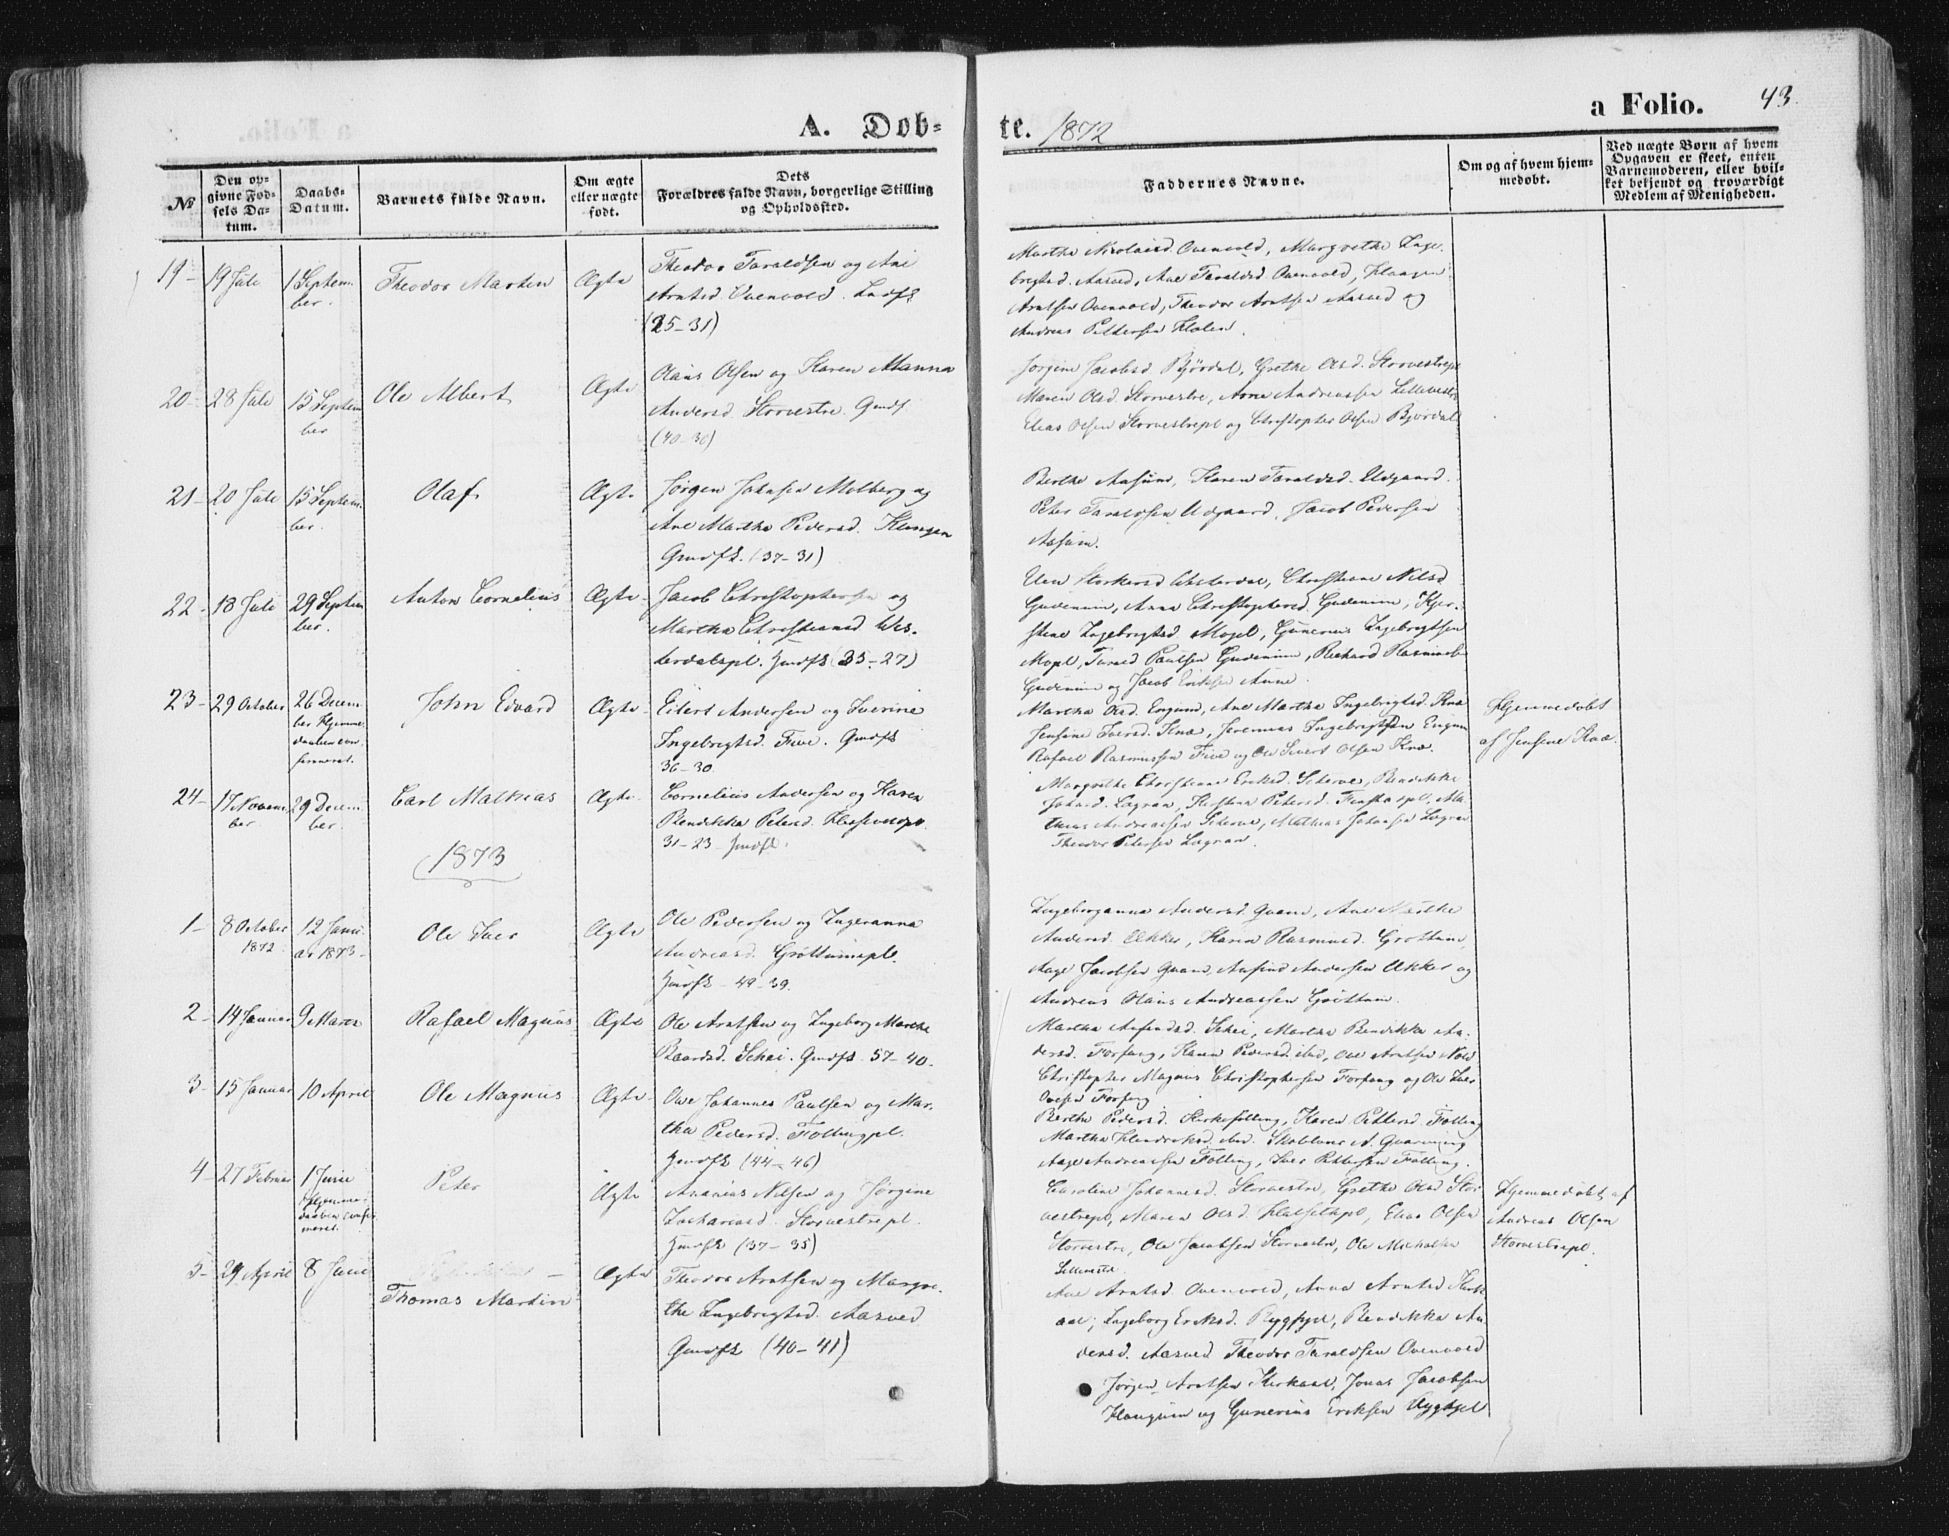 A. Døb=
te. 1872
a Folio. 43.
№
Den op=
givne Fød=
sels Da=
tum.
Daabs=
Datum.
Barnets fulde Navn.
Om ægte
eller uægte
født.
Dets
Forældres fulde Navn, borgerlige Stilling
og Opholdssted.
Faddernes Navne.
Om og af hvem hjem=
medøbt.
Ved uægte Børn af hvem
Opgaven er skeet, enten
Barnemoderen, eller hvil=
ket bekjendt og troværdigt
Medlem af Menigheden.
19 -
19 Juli
1 Septem
ber.
Theodor Martin
Ægte
Theodor Taraldsen og Ane
Arntsd. Ovenvold.
(25-31)
Martha Nicolaisd. Ovenvold, Margrethe Inge.
brigtsd. Aasved, Ane Taraldsd. Ovenvold, Haagen
Arntsen Ovenvold, Theodor Arntsen Aasved og
Andreas Pettersen
20 -
28 Juli
15 Septem
ber
Ole Albert
Ægte
Olaus Olsen og Karen Manna
Andersd. Storvestre. Gmdf.
(40-30)
Jørgine Jacobsd. Bjørdal, Grethe Olsd. Storvestrepl
Maren Olsd. Storvestre, Arne Andreassen Lillevestre
Elias Olsen Storvestrepl og Christopher Olsen Bjørdal
21 -
20 Juli
15 Septem
ber.
Olaf
Ægte
Jørgen Johnsen Molberg og
Ane Martha Pedersd. Klungen
Gmdfk. (37-31)
Berthe Aasum, Karen Taraldsd. Udgaard.
Peter Taraldsen Udgaard, Jacob Pedersen
Aasum.
22 -
18 Juli
29 Septem
ber.
Anton Cornelius
Ægte
Jacob Christophersen og
Martha Christiansd. Wes.
terdalspl. Gmdfk (35-27)
Storkersd. Christiane Nilsd
Gudenim, Anne Christophersd. Gudenim, Kjer.
stine Ingebrigtsd. Mopl, Gunerius Ingebrigtsen
Mopl, Paulsen Gudenim, Richard
Gudenim og Jacob Eriksen
23 -
29 October
26 Decem
ber Hjemme
daaben con
firmeret.
John Edvard
Ægte
Eilert Andersen og Iverine
Ingebrigtsd. Five. Gmdfk
36-30.
Martha Olsd. Engum, Ane Martha Ingebrigtsd. Kne
Jensine Iversd. Kne, Jeremias Ingebrigtsen Engum
Rafael Rasmussen Five og Ole Sivert Olsen Kne.
Hjemmedøbt
af Jensine Kne.
24 -
17 Novem
ber.
29 Decem
ber.
Carl Mathias
Ægte
Cornelius Andersen og Karen
Bendikka Petersd.
31-23 Gmdfk.
Margrethe Christiane Eriksd. Bendikke
Johnsd. Lagran, Petersd.
Andreassen Mathias Johnsen Lagran
Theodor Petersen Lagran.
1873
1 -
8 October
1872
12 Janu
ar 1873
Ole Iver
Ægte
Ole Pedersen og Ingeranna
Andreasd. Grøttumspl.
Gmdfk - 49-39.
Ingeborganna Andersd. Qvam, Ane Martha
Andersd. Ekker, Karen Rasmusd. Grøttum,
Aage Jacobsen Qvam, Anfind Andersen Ekker og
Andreas Olaus Andreassen Grøttum.
2 -
14 Januar
9 Marts
Rafael Magnus
Ægte
Ole Arntsen og Ingeborg Martha
Baardsd. Schei. Gmdfk. 57-40.
Martha Anfindsd. Schei, Martha Bendikka An.
dersd. Forfang, Karen Pedersd. ibd, Ole Arntsen
Christopher Magnus Christophersen Forfang og Ole Iver
Forfang
3 -
15 Januar
10 April
Ole Magnus
Ægte
Ove Johannes Paulsen og Mar.
tha Pedersd. Føllingpl.
Gmdfk (44-46)
Berthe Pedersd. Kirkefølling, Karen Pettersd. Følling
Martha Hendriksd. ibd. A. Qvarning
Aage Andreassen Følling, Iver Pettersen Følling.
4
27 Februar
1 Juni
Hjemme
daaben confir
meret.
Peter
Ægte
Ananias Nilsen og Jørgine
Zachariasd. Storvestrepl.
Gmdfk (37-35)
Caroline Johannesd. Storvestre, Grethe Olsd Stor
vestrepl, Maren Olsd. Elias Olsen
Storvestre, Ole Jacobsen Storvestre, Ole
Lillevestre.
Hjemmedøbt af
Andreas Olsen
Storvestrepl.
5 -
29 April
8 Juni
Thomas Martin
Ægte
Theodor Arntsen og Margre.
the Ingebrigtsd. Aasved
Gmdfk (40-41)
Ane Arntsd. Ovenvold, Anna Arntsd Kirk
aae, Ingeborg Eriksd. Bendikka An
dersd. Aasved Theodor Taraldsen Ovenvold
Jørgen Arntsen Kirkaae, Jonas Jacobsen
og Gunerius Eriksen